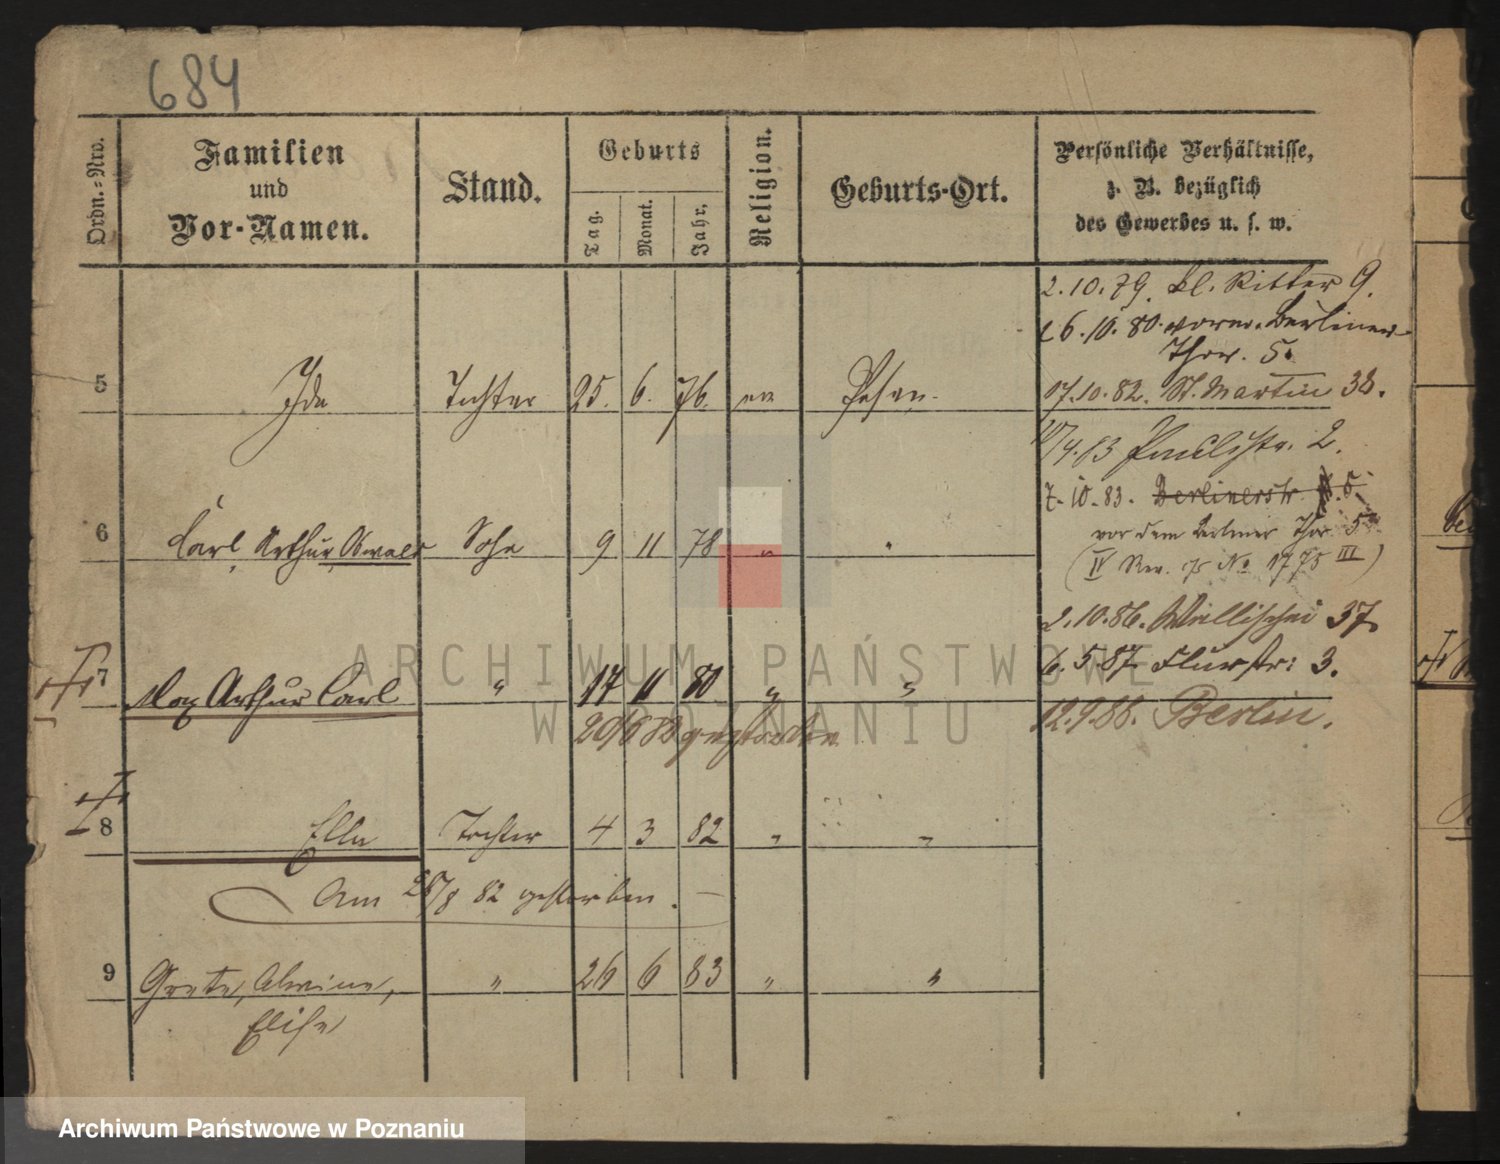 684
Ordn.=Nro.
Familien
und
Vor-Namen.
Stand.
Geburts
Tag.
Monat.
Jahr.
Religion.
Geburts-Ort.
Persönliche Verhältnisse,
z. B. bezüglich
des Gewerbes u. s. w.
2.10.79. Kl. Ritter 9.
26.10.80. vorm. Berliner
Thor. 5.
5 Ida Tochter 25. 6. 76. ev Posen.
17.10.82. St. Martin 38.
4.83 Paulistr. 2.
7.10.83. Berlinerstr. 5
vor dem Berliner Thor 5
(IV Rev. No 1775 III)
6 Carl, Arthur, Oswald Sohn 9 11 78 "
2.10.86. Wallischei 37.
6.5.87. Flurstr: 3.
7 Max Arthur Carl " 17 11 80 " "
12.9.88. Berlin.
20/6 83 gestorben
8 Ella Tochter 4 3 82 " "
Am 25/8 82 gestorben. —
9 Grete, Alwine, " 26 6 83 " "
Elise
ARCHIWUM PAŃSTWOWE
W POZNANIU
Archiwum Państwowe w Poznaniu